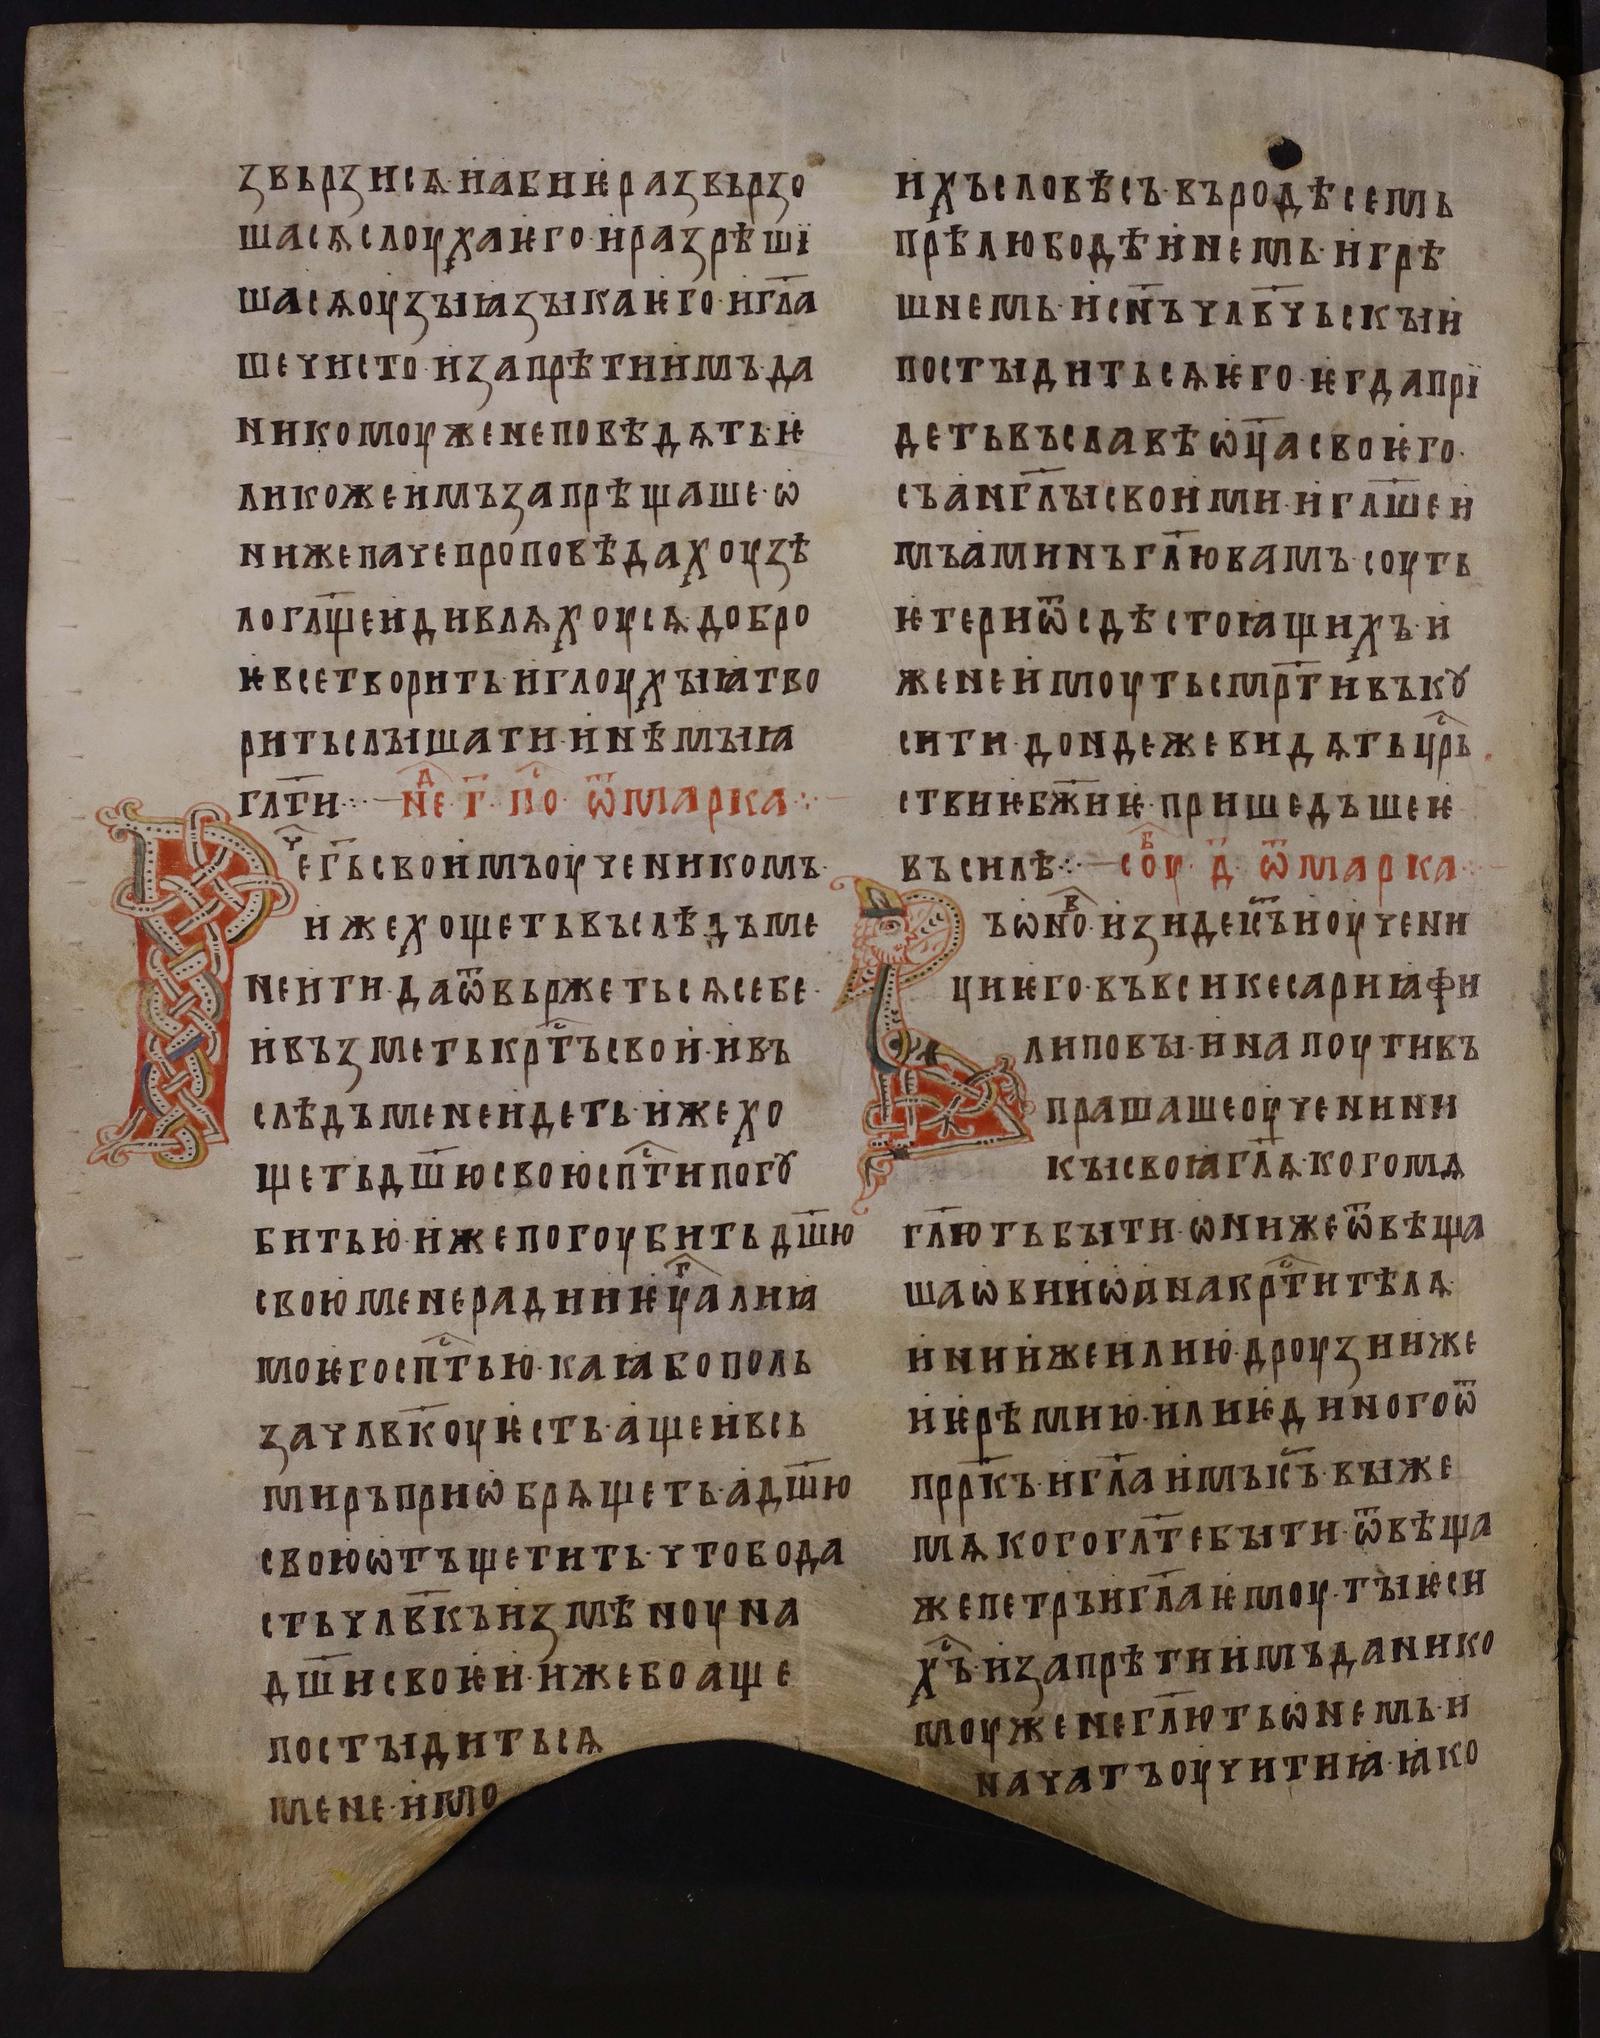 звьрзисѧ·набиѥразвьрзо
шасѧслоухаѥго·иразрѣшї
шасѧоузꙑꙗзꙑкаѥго·игл҃а
шечисто·изапрѣтиимъ·да
никомоуженеповѣдѧть·ѥ
ликожеимъзапрѣщаше·ѡ
нижепачепроповѣдахоузѣ
логл҃щеидивлѧхоусѧ·добро
ѥвсетворить·иглоухꙑꙗтво
ритьслꙑшати·инѣмꙑꙗ
гл҃ти··:— неⷣ·г҃·поⷭ·ѿмарка·:·—
Рчⷷег҃ьсвоимъоученикомъ·
ижехощетьвъслѣдъме
неити·даѿвьржетьсѧсебе·
ивъзметькрⷭ҇тъсвои·ивъ
слѣдъменеидеть·ижехо
щетьдш҃юсвоюсп҃ⷭтипогꙋ
битью·ижепогоубитьдш҃ю
своюменерадииѥⷢуаⷩлиꙗ
моѥгосп҃ⷭтью·каꙗбополь
зачлв҃коуѥсть·ащеивсь
миръприѡбрѧщеть·адш҃ю
своюѡтъщетить·чтобода
стьчлв҃къизмѣноуна
дш҃исвоѥи·ижебоаще
постꙑдитьсѧ
мене·имо
ихъсловѣсъ·въродѣсемь
прѣлюбодѣинемь·игрѣ
шнемь·исн҃ъчлв҃чьскꙑи
постꙑдитьсѧѥго·ѥгдапрї
детьвъславѣѡц҃асвоѥго·
съанг҃лꙑсвоими·игл҃шеи
мъаминъгл҃ювамъ·соуть
ѥтериѿсдѣстоꙗщихъ·и
женеимоутьсмрт҃ивъкꙋ
сити·дондежевидѧтьцрⷭь
ствиѥбж҃иѥ·пришедъшеѥ
въсилѣ··:— соⷠу·д҃·ѿмарка·:·—
Въѡноⷡ·изидеис҃ъиоучени
циѥго·въвсикесариꙗфи
липовꙑ·инапоутивъ
прашашеоученини
кꙑсвоꙗгл҃ѧ·когомѧ
гл҃ютьбꙑти·ѡнижеѿвѣща
шаѡвииѡанакрⷭ҇тителѧ·
ииниижеилию·дроузииже
иѥрѣмию·илиѥдиногоѿ
прр҃къ·игл҃аимъис҃ъ·вꙑже
мѧкогогл҃тебꙑти·ѿвѣща
жепетръигл҃аѥмоу·тꙑѥси
хⷭъ·изапрѣтиимъданико
моуженегл҃ютьѡнемь·и
начатъоучитиꙗ·ꙗко